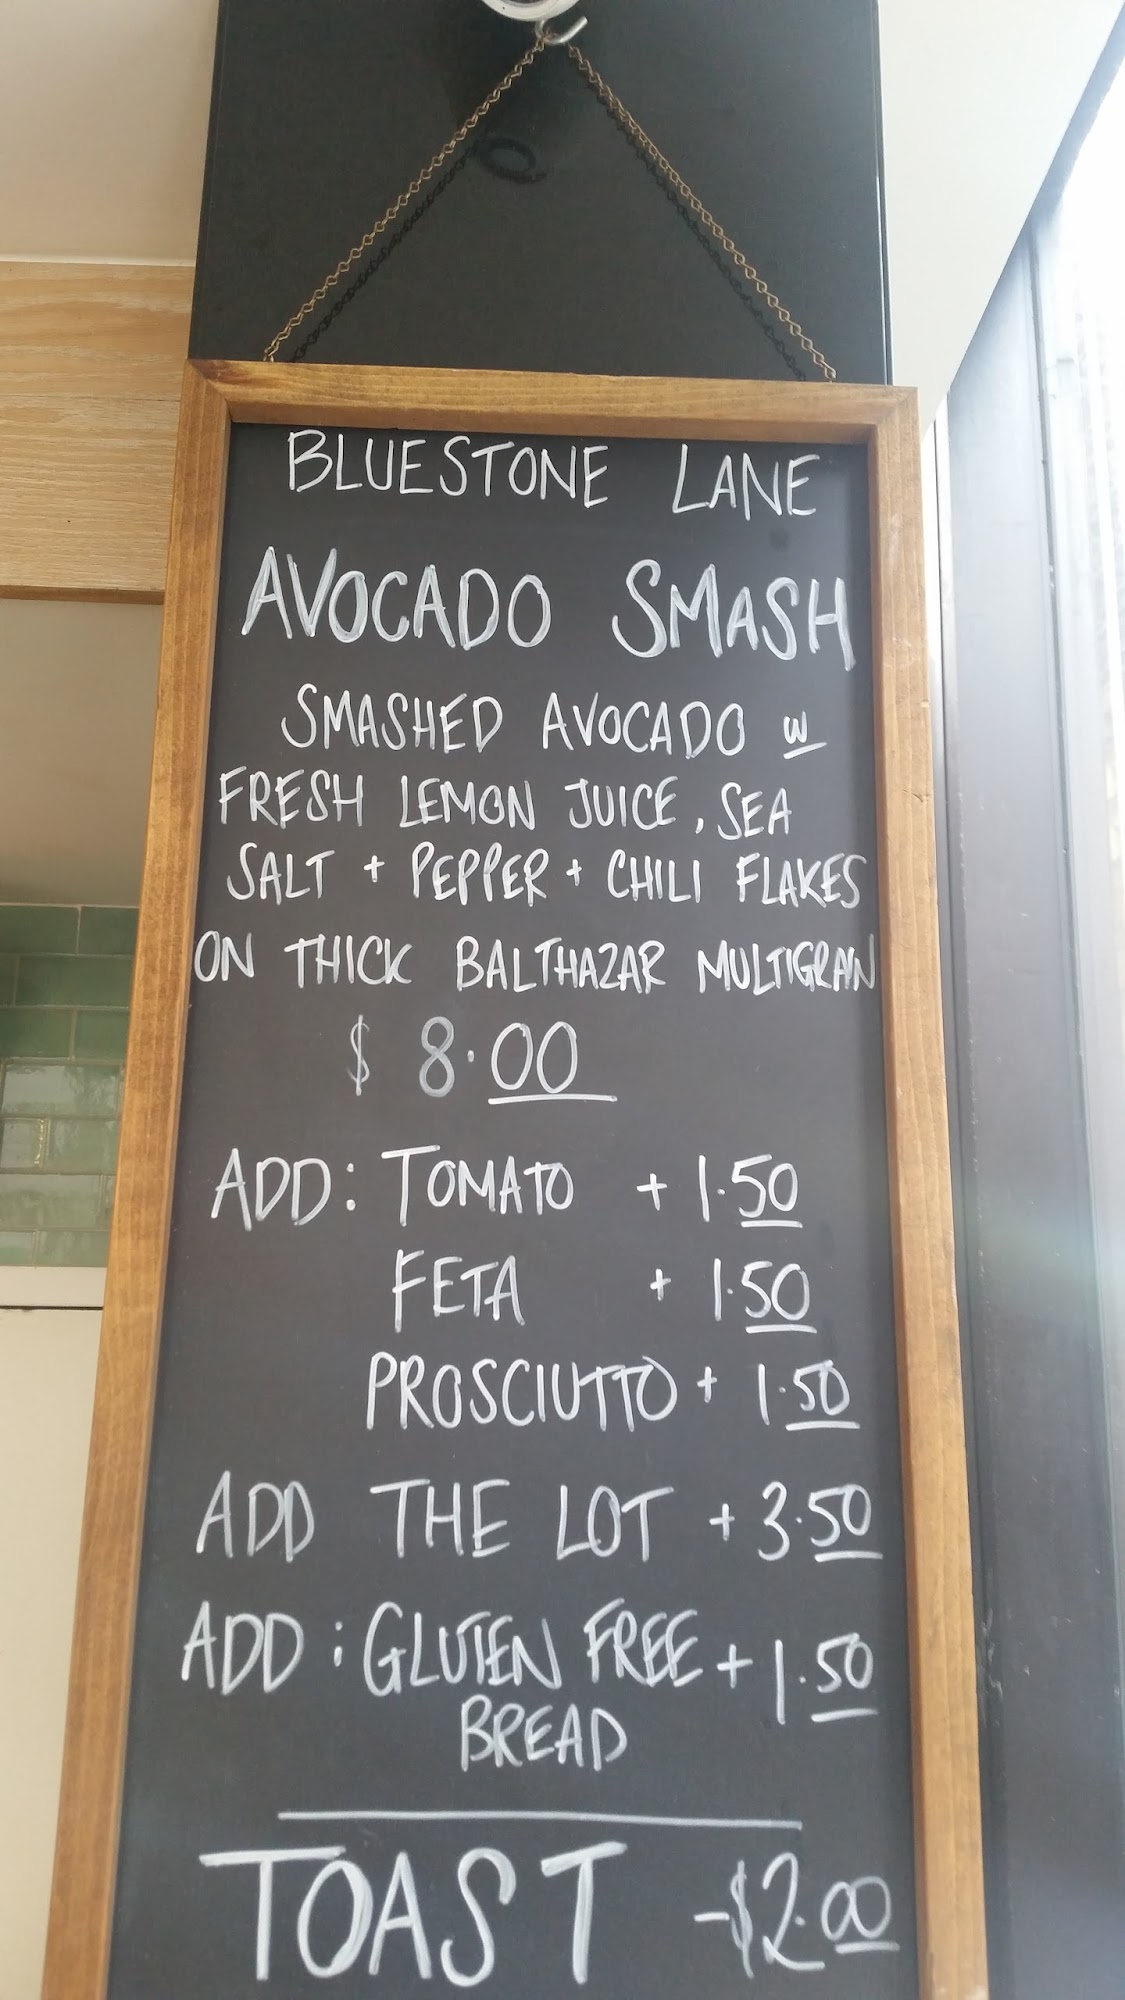 BLUESTONE LANE
AVOCADO SMASH
SMASHED AVOCADO w
FRESH LEMON JUICE, SEA
SALT + PEPPER + CHILI FLAKES
ON THICK BALTHAZAR MULTIGRAIN
$ 8.00
ADD: TOMATO + 1.50
FETA + 1.50
PROSCIUTTO + 1.50
ADD THE LOT + 3.50
ADD: GLUTEN FREE + 1.50
BREAD
TOAST -$2.00